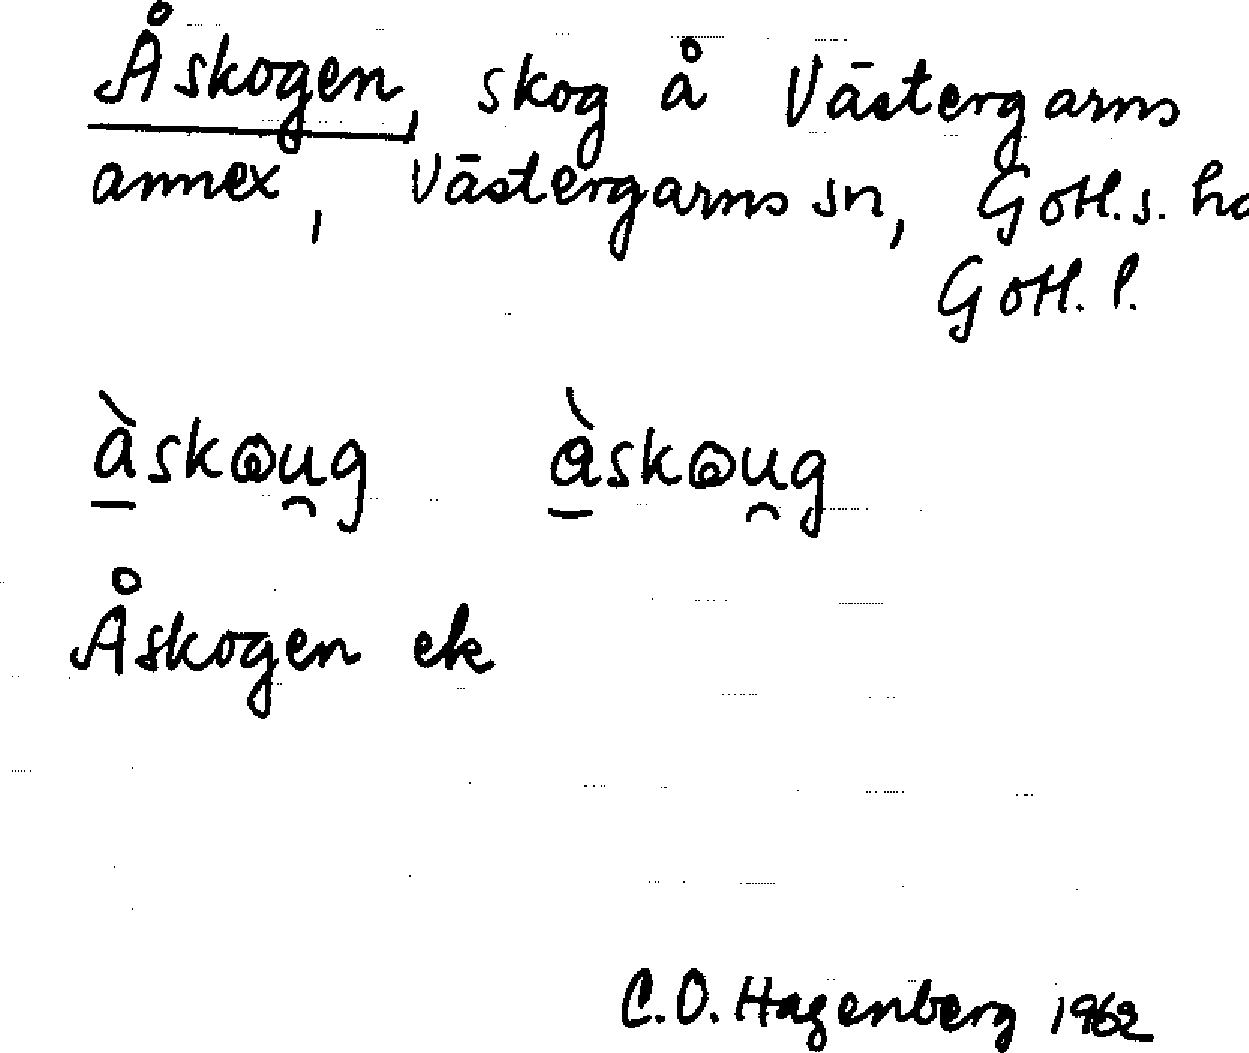 Åskogen, skog å Västergarns
annex, Västergarns sn, Gotl. s. hd
Gotl. l.
Åskogen ek
C.O. Hagenberg 1962